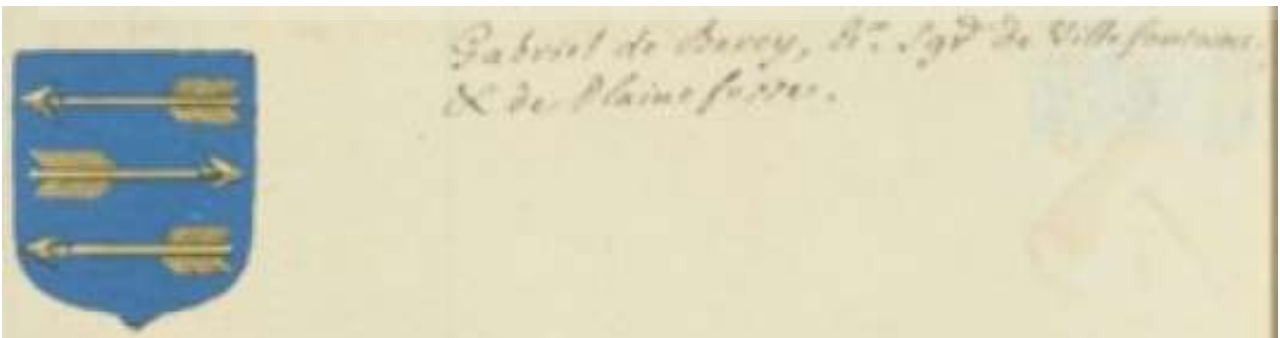 Gabriel de Bercy, Er. Sgr de Villefontaine,
& de Plaine fosse.